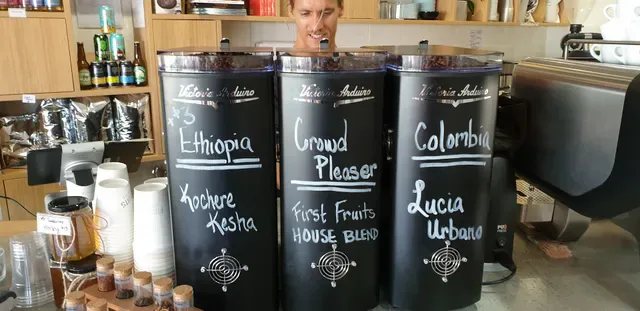 Victoria Arduino
*3
Ethiopia
Kochere
Kesha
Victoria Arduino
Crowd
Pleaser
First Fruits
HOUSE BLEND
Victoria Arduino
Colombia
Lucia
Urbano